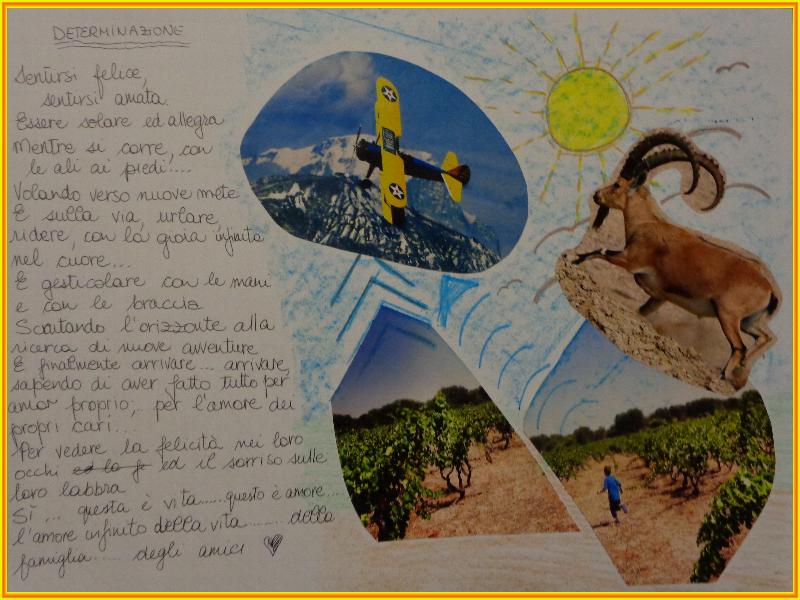 DETERMINAZIONE
Sentirsi felice,
sentirsi amata.
Essere solare ed allegra
Mentre si corre, con
le ali ai piedi....
Volando verso nuove mete
E sulla via, urlare,
ridere, con la gioia infinita
nel cuore...
E gesticolare con le mani
e con le braccia
Scrutando l'orizzonte alla
ricerca di nuove avventure
E finalmente arrivare... arrivare,
sapendo di aver fatto tutto per
amor proprio, per l'amore dei
propri cari...
Per vedere la felicità nei loro
occhi ed il sorriso sulle
loro labbra
Sì ... questa è vita......questo è amore...
l'amore infinito della vita ......... della
famiglia...... degli amici